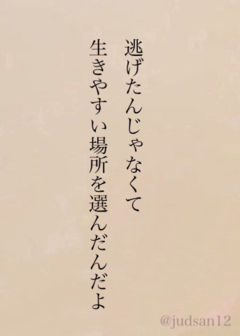 逃げたんじゃなくて
生きやすい場所を選んだんだよ
@judsan12